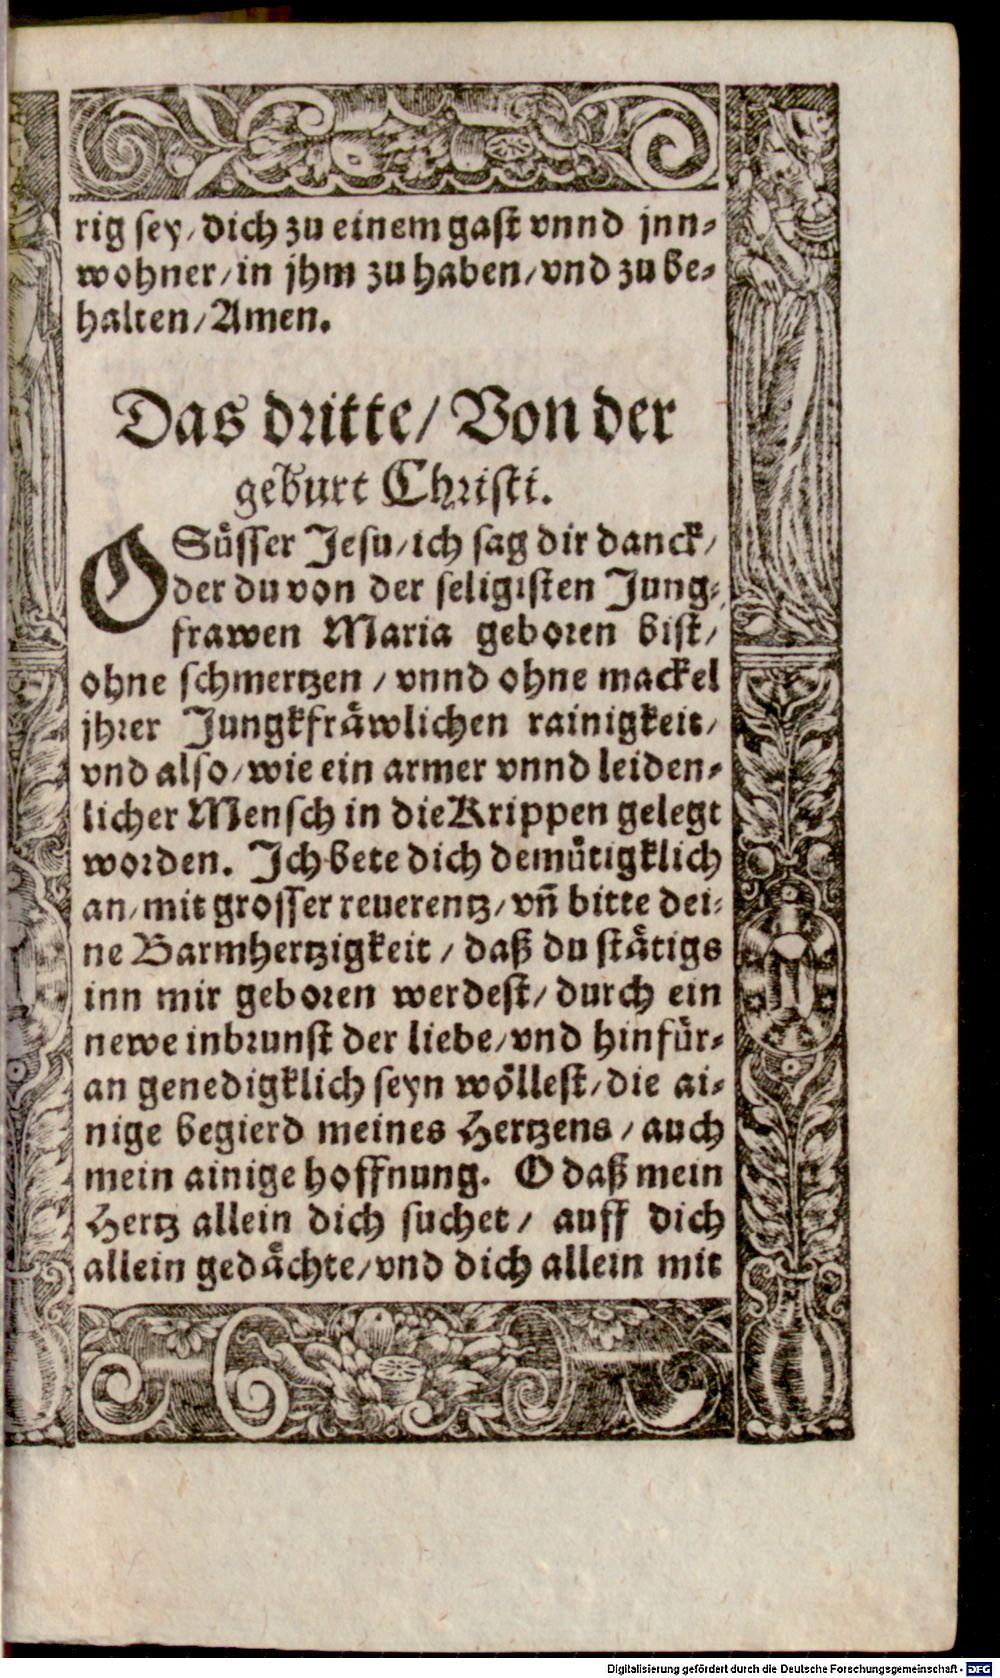 rig sey/dich zu einem gast vnnd jnn⸗
wohner/in jhm zu haben/vnd zu be⸗
halten/Amen.
Das dritte/Von der
geburt Christi.
O Süsser Jesu/ich sag dir danck/
der du von der seligisten Jung⸗
frawen Maria geboren bist/
ohne schmertzen/vnnd ohne mackel
jhrer Jungkfräwlichen rainigkeit/
vnd also/wie ein armer vnnd leiden⸗
licher Mensch in die Krippen gelegt
worden. Ich bete dich demütigklich
an/mit grosser reuerentz/vñ bitte dei⸗
ne Barmhertzigkeit/daß du stätigs
inn mir geboren werdest/durch ein
newe inbrunst der liebe/vnd hinfür⸗
an genedigklich seyn wöllest/die ai⸗
nige begierd meines Hertzens/auch
mein ainige hoffnung. O daß mein
Hertz allein dich suchet/auff dich
allein gedächte/vnd dich allein mit
Digitalisierung gefördert durch die Deutsche Forschungsgemeinschaft - DFG